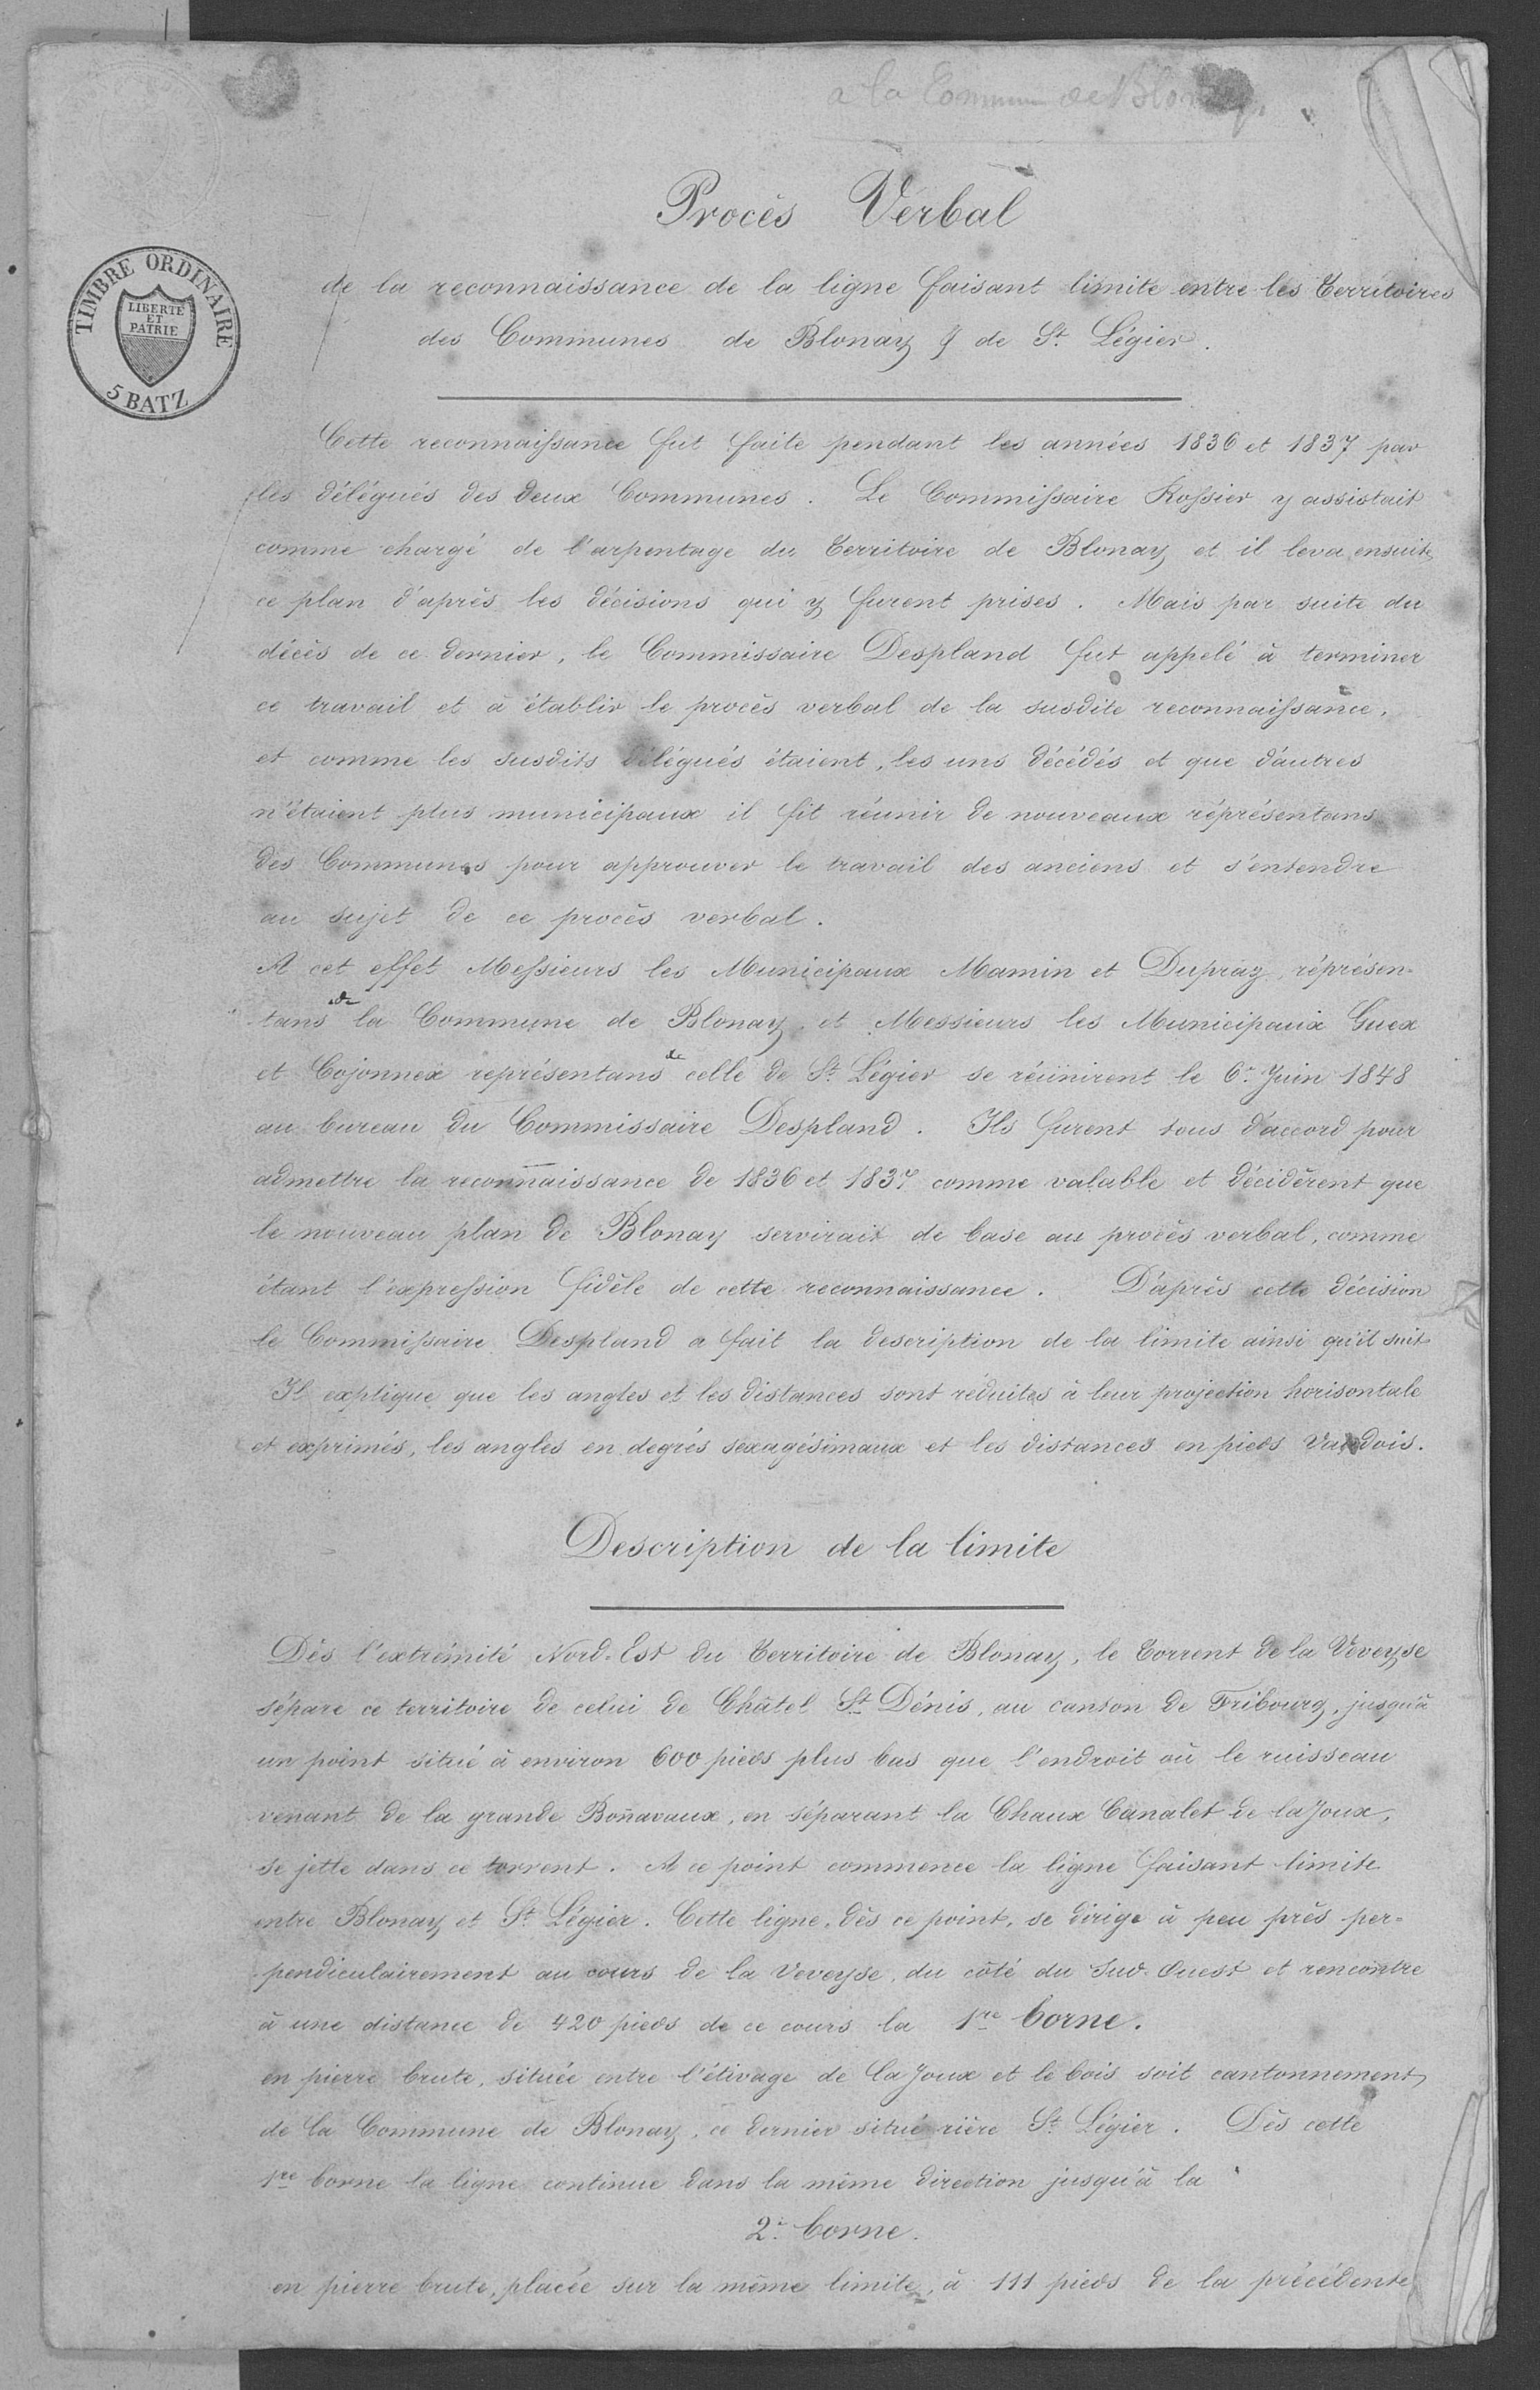 a la Commune de Blonay.
Procès Verbal
de la reconnaissance de la ligne faisant limite entre les Territoires
des Communes de Blonay & de St. Légier.
TIMBRE ORDINAIRE
LIBERTÉ
ET
PATRIE
5 BATZ
Cette reconnaissance fut faite pendant les années 1836 et 1837 par
les délégués des deux Communes. Le Commissaire Rossier y assistait
comme chargé de l'arpentage du Territoire de Blonay et il leva ensuite
ce plan d'après les décisions qui y furent prises. Mais par suite du
décès de ce dernier, le Commissaire Despland fut appelé à terminer
ce travail et à établir le procès verbal de la susdite reconnaissance,
et comme les susdits délégués étaient, les uns décédés et que d'autres
n'étaient plus municipaux il fit réunir de nouveaux réprésentans
des Communes pour approuver le travail des anciens et s'entendre
au sujet de ce procès verbal.
A cet effet Messieurs les Municipaux Mamin et Dupraz, réprésen-
tans de la Commune de Blonay, et Messieurs les Municipaux Guex
et Cojonnex représentans de celle de St. Légier se réunirent le 6e. Juin 1848
au bureau du Commissaire Despland. Ils furent tous d'accord pour
admettre la reconnaissance de 1836 et 1837 comme valable et décidèrent que
le nouveau plan de Blonay servirait de base au procès verbal, comme
étant l'expression fidèle de cette reconnaissance. D'après cette décision
le Commissaire Despland a fait la description de la limite ainsi qu'il suit
Il explique que les angles et les distances sont réduites à leur projection horisontale
et exprimés, les angles en degrés sexagésimaux et les distances en pieds Vaudois.
Description de la limite
Dès l'extrémité Nord-Est du Territoire de Blonay, le Torrent de la Veveyse
sépare ce territoire de celui de Châtel St. Dénis, au canton de Fribourg, jusqu'à
un point situé à environ 600 pieds plus bas que l'endroit où le ruisseau
venant de la grande Bonavaux, en séparant la Chaux Canalet de la Joux,
se jette dans ce torrent. A ce point commence la ligne faisant limite
entre Blonay et St. Légier. Cette ligne, dès ce point, se dirige à peu près per-
pendiculairement au cours de la Veveyse, du côté du Sud-Ouest et rencontre
à une distance de 420 pieds de ce cours la 1re borne.
en pierre brute, située entre l'étivage de la Joux et le bois soit cantonnement
de la Commune de Blonay, ce dernier situé rière St. Légier. Dès cette
1re borne la ligne continue dans la même direction jusqu'à la
2e. borne.
en pierre brute, placée sur la même limite, à 111 pieds de la précédente